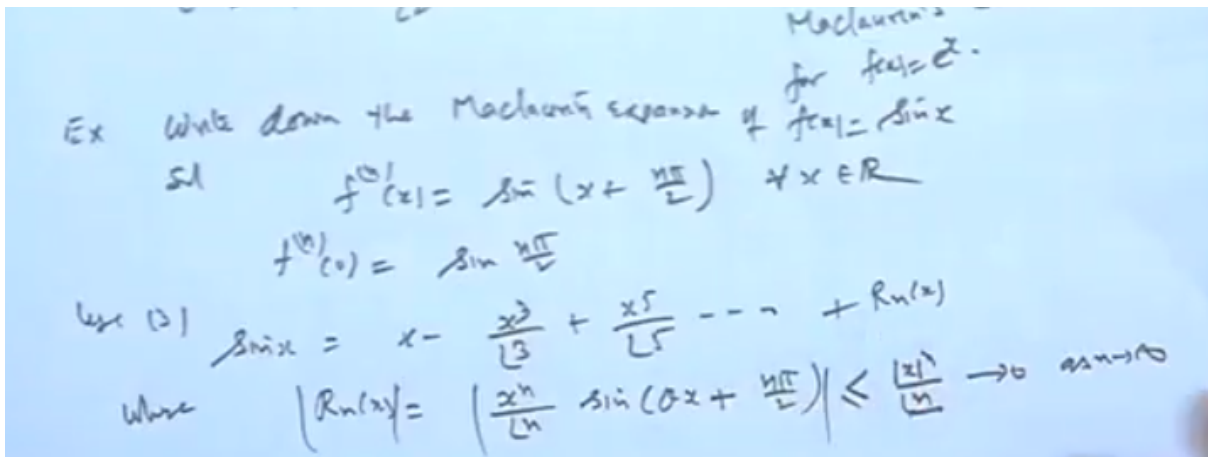 Maclaurin's
for f(x)=e^x.
Ex Write down the Maclaurin's expansion of f(x)= sin x
Sol f^(n)(x)= sin (x+ nπ/2) ∀ x ∈ R
f^(n)(0) = sin nπ/2
Use (3) sin x = x - x^3/⌊3 + x^5/⌊5 - - - + Rn(x)
where |Rn(x)|= |x^n/⌊n sin (θx + nπ/2)| ≤ |x|^n/⌊n → 0 as n→∞